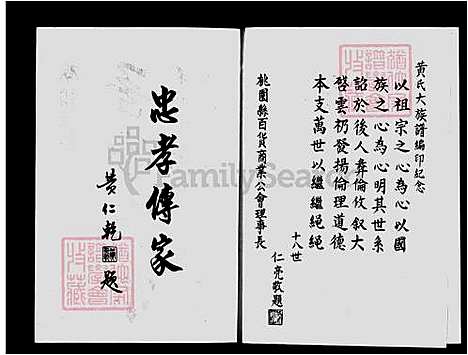 黃氏大族譜編印紀念
以祖宗之心為心以國
族之心為心明其世系
詒於後人彝倫攸叙大
啓雲礽發揚倫理道德
本支萬世以繼繼繩繩
十八世
仁亮敬題
桃園縣百貨商業公會理事長
忠孝傳家
黃仁乾題
FamilySearch